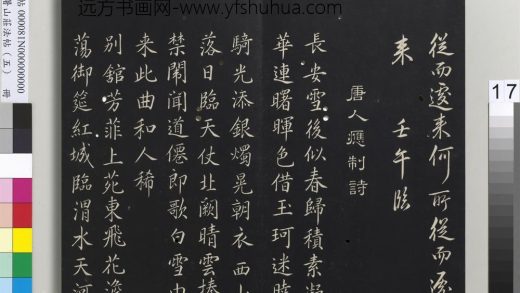 远方书画网-www.yfshuhua.com
從而邃来何所從而
来 壬午临
唐人應制詩
長安雪後似春歸積素凝
華連曙暉色借玉珂迷曉
騎光添銀燭晃朝衣西山
落日臨天仗北闕晴雲捧
禁闈聞道僊郎歌白雪由
来此曲和人稀
别館芳菲上苑東飛花澹
蕩御筵紅城臨渭水天河
避暑山莊法帖（五） 册
000081N000000000
17